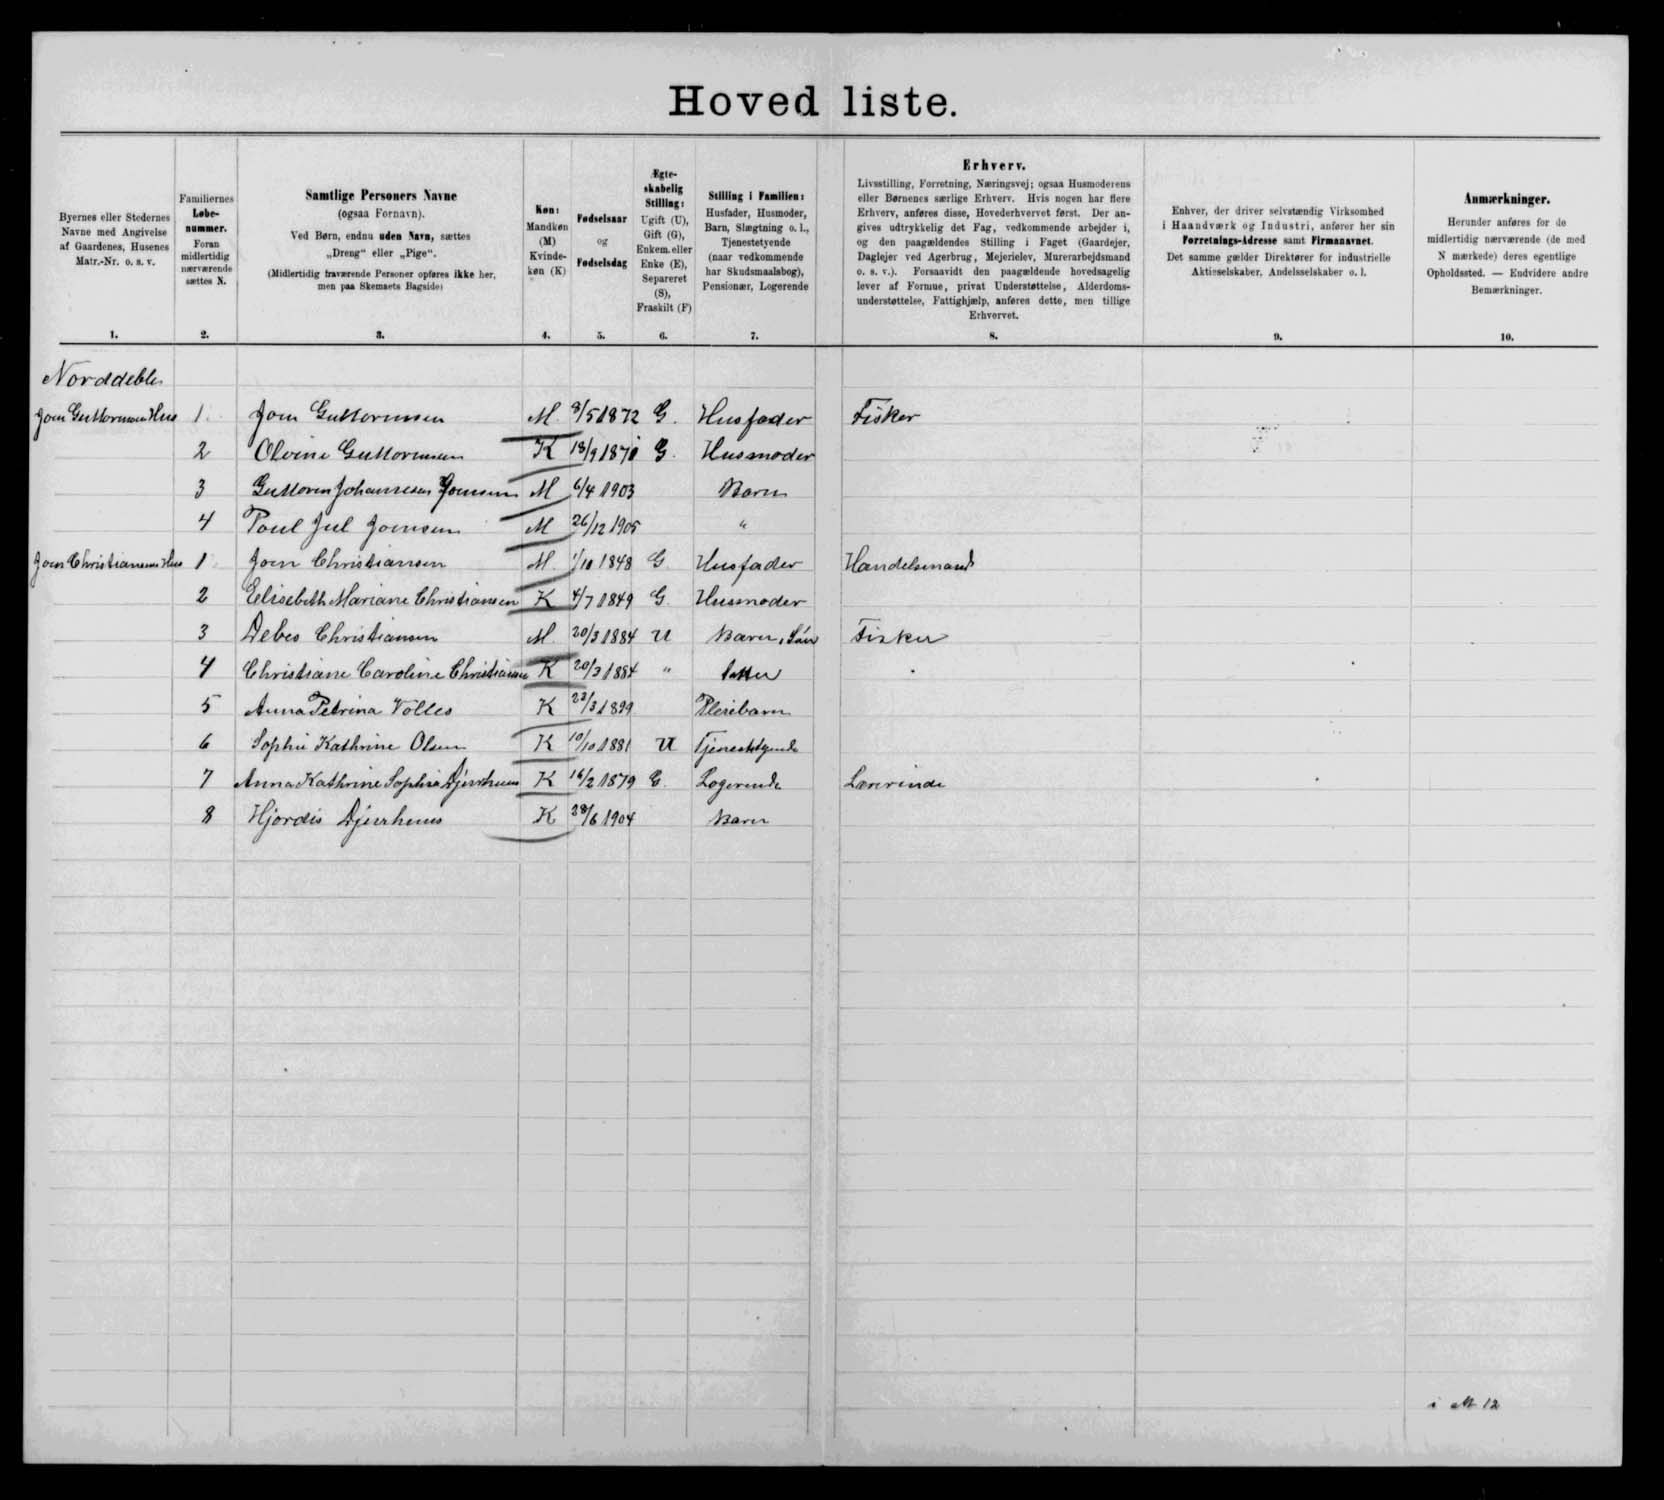 Hoved liste.
Byernes eller Stedernes Navne med Angivelse af Gaardenes, Husenes Matr.-Nr. o. s. v.
Familiernes Løbenummer. Foran midlertidig nærværende sættes N.
Samtlige Personers Navne
(ogsaa Fornavn).
Ved Børn, endnu uden Navn, sættes „Dreng“ eller „Pige“.
(Midlertidig fraværende Personer opføres ikke her, men paa Skemaets Bagside)
Køn: Mandkøn (M) Kvindekøn (K)
Fødselsaar og Fødselsdag
Ægteskabelig Stilling: Ugift (U), Gift (G), Enkem. eller Enke (E), Separeret (S), Fraskilt (F)
Stilling i Familien: Husfader, Husmoder, Barn, Slægtning o. l., Tjenestetyende (naar vedkommende har Skudsmaalsbog), Pensionær, Logerende
Erhverv.
Livsstilling, Forretning, Næringsvej; ogsaa Husmoderens eller Børnenes særlige Erhverv. Hvis nogen har flere Erhverv, anføres disse, Hovederhvervet først. Der angives udtrykkelig det Fag, vedkommende arbejder i, og den paagældendes Stilling i Faget (Gaardejer, Daglejer ved Agerbrug, Mejerielev, Murerarbejdsmand o. s. v.). Forsaavidt den paagældende hovedsagelig lever af Formue, privat Understøttelse, Alderdomsunderstøttelse, Fattighjælp, anføres dette, men tillige Erhvervet.
Enhver, der driver selvstændig Virksomhed i Haandværk og Industri, anfører her sin Forretnings-Adresse samt Firmanavnet. Det samme gælder Direktører for industrielle Aktieselskaber, Andelsselskaber o. l.
Anmærkninger.
Herunder anføres for de midlertidig nærværende (de med N mærkede) deres egentlige Opholdssted. — Endvidere andre Bemærkninger.
1. 2. 3. 4. 5. 6. 7. 8. 9. 10.
Norddeble
Joen Guttormsen Hus 1 Joen Guttormsen M. 8/5 1872 G. Husfader Fisker
2 Olvine Guttormsen K 18/9 1870 G. Husmoder
3 Guttorm Johannesen Joensen M 6/4 1903 Barn
4 Poul Jul Joensen M 26/12 1905 "
Joen Christiansens Hus 1 Joen Christiansen M. 1/10 1848 G Husfader Handelsmand
2 Elisebeth Mariane Christiansen K 4/7 1849 G. Husmoder
3 Debes Christiansen M. 20/3 1884 U Barn, Sön Fisker
4 Christiane Caroline Christiansen K 20/3 1884 " datter
5 Anna Petrina Volles K 23/3 1899 Pleiebarn
6 Sophie Kathrine Olsen K 10/10 1881 U Tjenestetyende
7 Anna Kathrine Sophie Djurhuus K 16/2 1879 G. Logerende Lærerinde
8 Hjordis Djurhuus K 28/6 1904 Barn
i alt 12